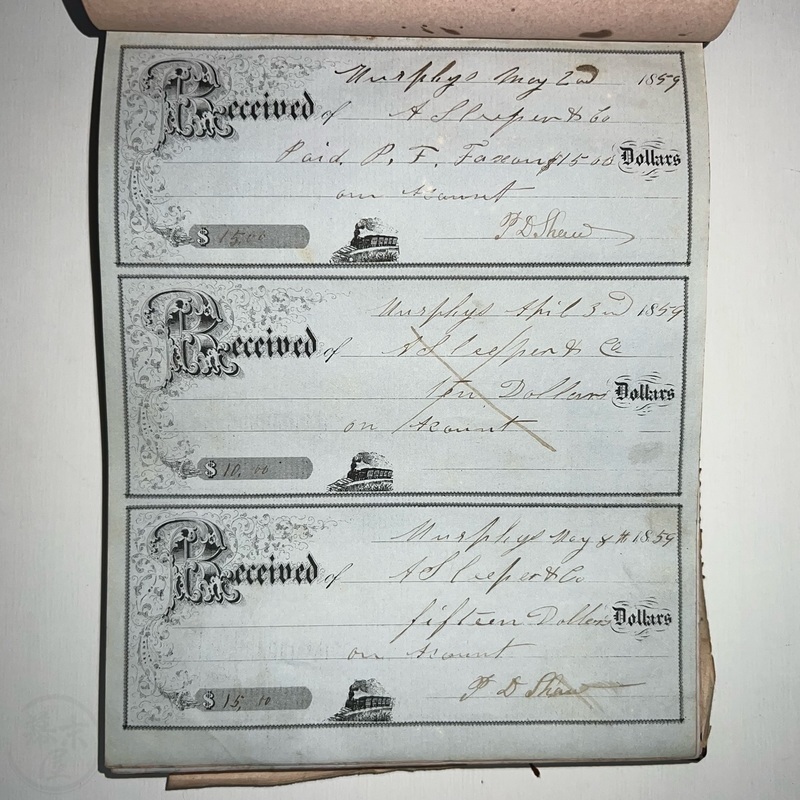 Murphys May 2nd 1859
Received of A Sleeper & Co
Paid. P. F. Faxon $15 00 Dollars
on Acount
$ 15,00 P D Shaw
Murphys Apil 3rd 1859
Received of A Sleepper & Co
ten Dollars Dollars
on Acount
$ 10, 00
Murphys May 8th 1859
Received of A Sleeper & Co
fifteen Dollars Dollars
on Acount
$ 15, 00 P D Shaw